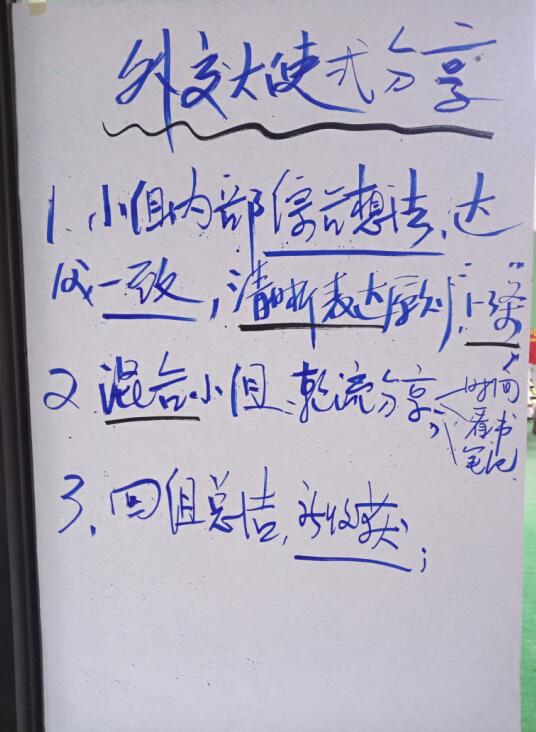 外交大使式分享
1. 小组内部综合想法,达
成一致,清晰表达原则"上条"
2 混合小组、轮流分享
时间
看书
笔记
3、回组总结,新收获;